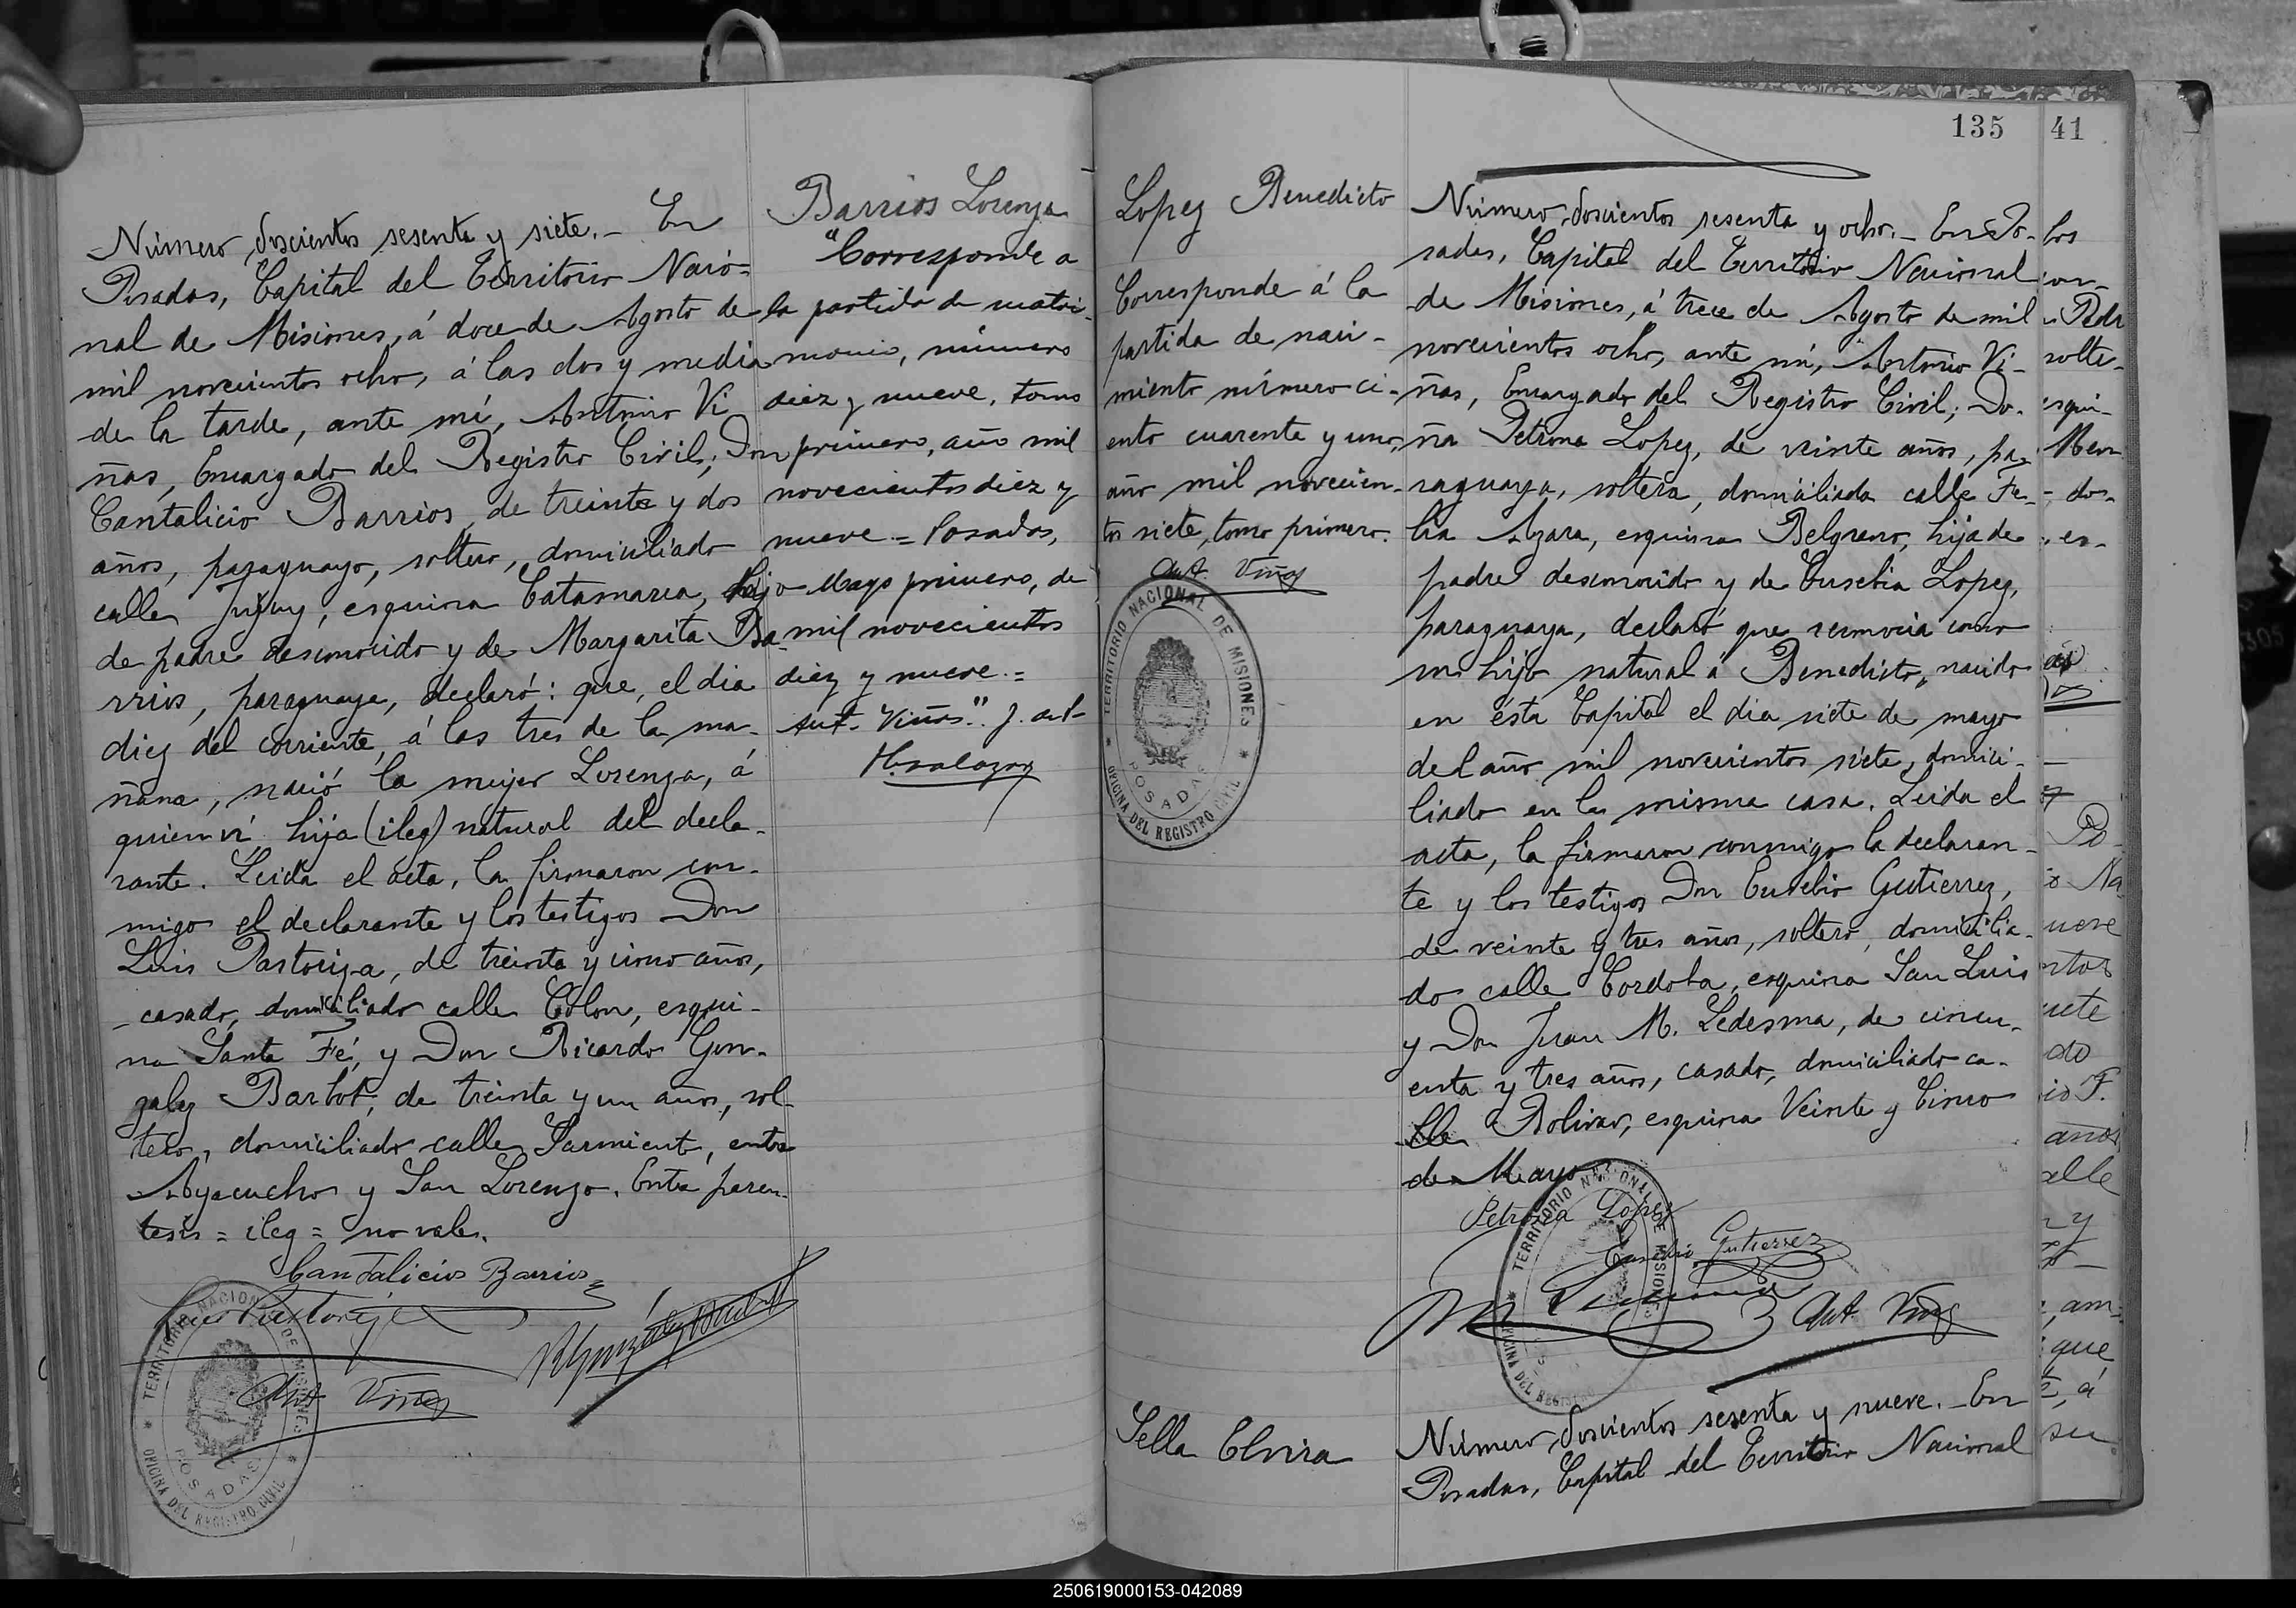 Número doscientos sesenta y siete. - En
Posadas, Capital del Territorio Nacio-
nal de Misiones, á doce de Agosto de
mil novecientos ocho, á las dos y media
de la tarde, ante mí, Antonio Vi
ñas, Encargado del Registro Civil; Don
Cantalicio Barrios, de treinta y dos
años, paraguayo, soltero, domiciliado
calle Jujuy, esquina Catamarca, hijo
de padre desconocido y de Margarita Ba-
rrios, paraguaya, declaró: que, el dia
diez del corriente, á las tres de la ma-
ñana, nació la mujer Lorenza, á
quien ví, hija (ileg) natural del decla-
rante. Leida el acta, la firmaron con-
migo el declarante y los testigos Don
Luis Pastoriza, de treinta y cinco años,
casado, domiciliado calle Colon, esqui-
na Santa Fé, y Don Ricardo Gon-
zalez Barbot, de treinta y un años, sol-
tero, domiciliado calle Sarmiento, entre
Ayacucho y San Lorenzo. Entre paren-
tesis = ileg = no vale.
Cantalicio Barrios
Luis Pastoriza
R González Barbot
Ant Viñas
TERRITORIO NACIONAL DE MISIONES
POSADAS
OFICINA DEL REGISTRO CIVIL
Barrios Lorenza
"Corresponde a
la partida de matri-
monio, número
diez y nueve, tomo
primero, año mil
novecientos diez y
nueve = Posadas,
Mayo primero, de
mil novecientos
diez y nueve. =
Ant. Viñas".
Lopez Benedicto
Corresponde á la
partida de naci-
miento número ci-
ento cuarenta y uno,
año mil novecien-
tos siete, tomo primero.
Ant. Viñas
TERRITORIO NACIONAL DE MISIONES
POSADAS
OFICINA DEL REGISTRO CIVIL
135
Número doscientos sesenta y ocho. - En Po-
sadas, Capital del Territorio Nacional
de Misiones, á trece de Agosto de mil
novecientos ocho, ante mí, Antonio Vi-
ñas, Encargado del Registro Civil; Do-
ña Petrona Lopez, de veinte años, pa-
raguaya, soltera, domiciliada calle Fe-
lix Azara, esquina Belgrano, hija de
padre desconocido y de Eusebia Lopez,
paraguaya, declaró que reconocia como
su hijo natural á Benedicto, nacido
en ésta Capital el dia siete de mayo
del año mil novecientos siete, domici-
liado en la misma casa. Leida el
acta, la firmaron conmigo la declaran-
te y los testigos Don Eusebio Gutierrez,
de veinte y tres años, soltero, domicilia-
do calle Cordoba, esquina San Luis
y Don Juan M. Ledesma, de cincu-
enta y tres años, casado, domiciliado ca-
lle Bolivar, esquina Veinte y Cinco
de Mayo
Petrona Lopez
Eusebio Gutierrez
M Ledesma
Ant. Viñas
TERRITORIO NACIONAL DE MISIONES
OFICINA DEL REGISTRO
Sella Elvira
Número doscientos sesenta y nueve. - En
Posadas, Capital del Territorio Nacional
41
los
Pedr
solte-
esqui-
dos
Po-
Na
ueve
ntos
iete
do
io F.
años
alle
y
am-
que
á
su
250619000153-042089